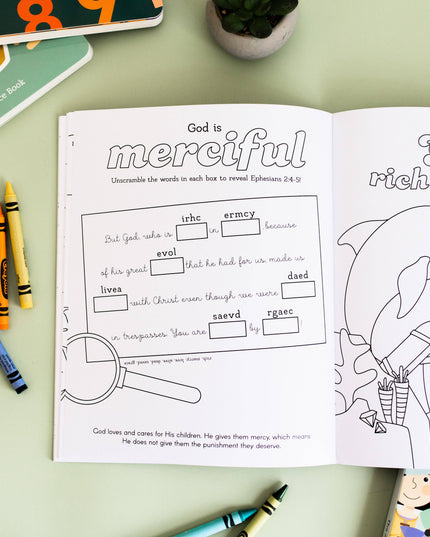 8 9
ce Book
God is
merciful
Unscramble the words in each box to reveal Ephesians 2:4-5!
irhc ermcy
But God, who is in because
evol
of his great that he had for us, made us
livea daed
with Christ even though we were
saevd rgaec
in trespasses. You are by !
rich, mercy, love, alive, dead, saved, grace
God loves and cares for His children. He gives them mercy, which means
He does not give them the punishment they deserve.
rich